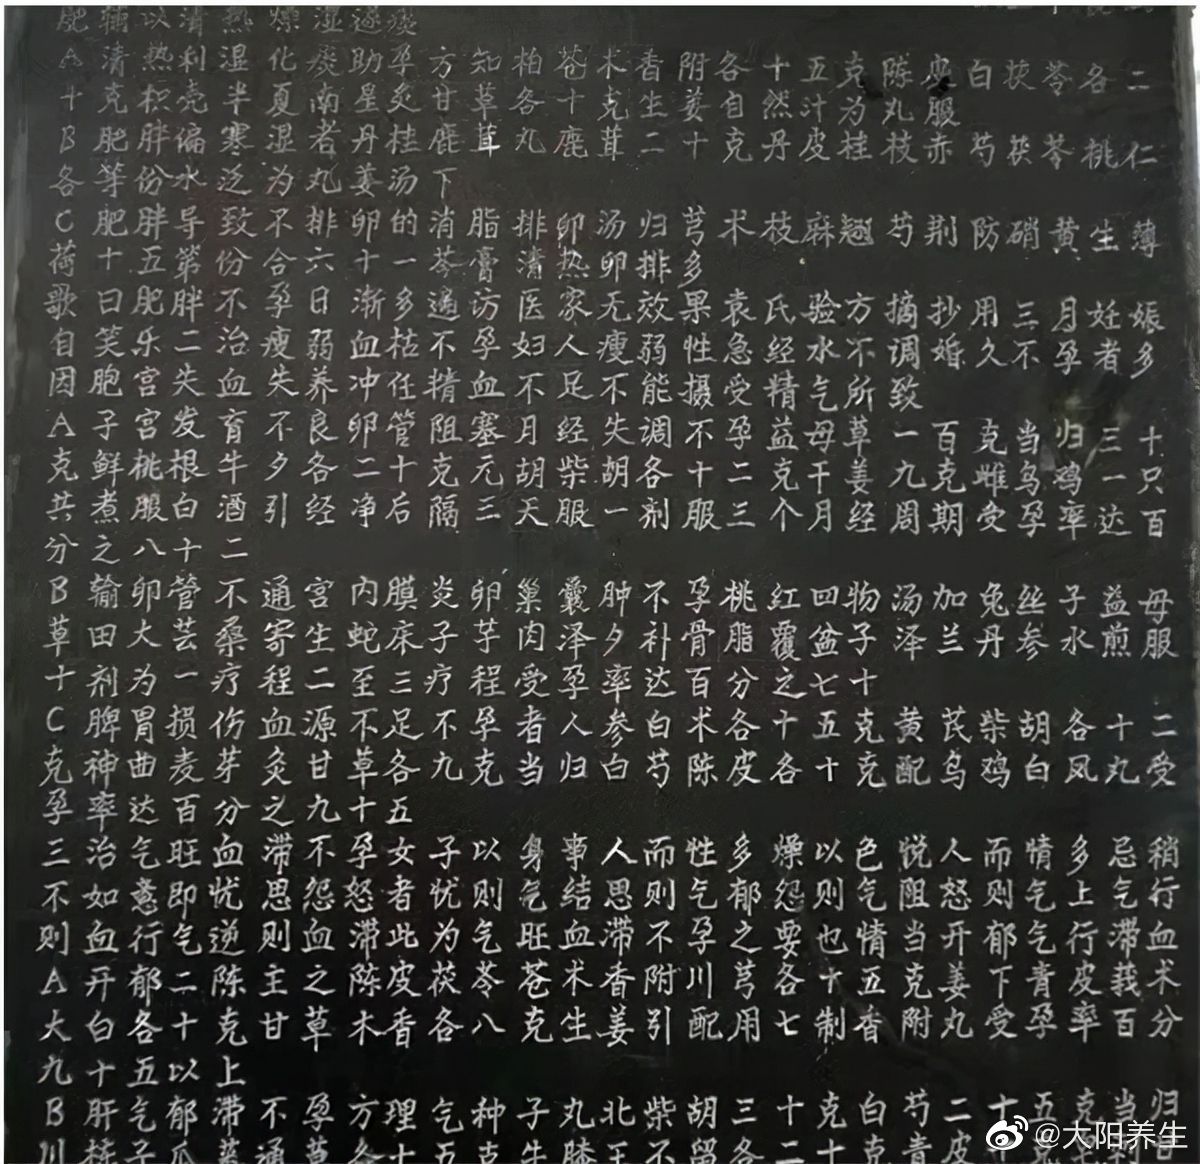 肥辅以清热燥湿逐痰
A清热利湿化痰助孕方知柏苍术香附各十五克陈皮白茯苓各二
十克枳壳半夏南星炙甘草各十克生姜自然汁为丸服
B肥胖偏寒湿者丹桂鹿茸丸鹿茸二十克丹皮桂枝赤芍茯苓桃仁
各等份水泛为丸姜汤下
C肥胖导致不排卵的消脂排卵汤归芎术枝麻翘芍荆防硝黄生薄
荷十五第份合六十一芩膏清热卵排多
歌曰肥胖不孕日渐多通访医家无效果袁氏验方摘抄用三月妊娠
自笑乐二治瘦弱血枯不孕妇人瘦弱性急经水不调婚久不孕者多
因胞宫失血失养冲任精血不足不能摄受精气所致
A子宫发育不良卵管阻塞月经失调不孕益母草一百克当归三十
克鲜桃根牛夕各二十克元胡柴胡各十克干姜九克雌乌鸡一只
共煮服白酒引经净后隔三天服一剂服三个月经周期受孕率达百
分之八十二
B输卵管不通宫内膜炎卵巢囊肿不孕桃红四物汤加兔丝子益母
草田大芸桑寄生蛇床子芋肉泽夕补骨脂覆盆子泽兰丹参水煎服
十剂为一疗程二至三疗程受孕率达百分之七十
C脾胃损伤血源不足不孕者人参白术各十五克黄芪柴胡各十二
克神曲麦芽炙甘草各九克当归白芍陈皮各十克配乌鸡白凤丸受
孕率达百分之九十五
三治气旺血滞不孕女子以身事人而性多燥以色悦人而情多忌稍
不如意即忧思怨怒者忧则气结思则气郁怨则气阻怒则气上气行
则血行气逆则血滞此为气旺血滞不孕之要也当情开郁气行滞血
A开郁二陈主之陈皮茯苓苍术香附川芎各十五克姜下青皮莪术
大白各十克甘草木香各八克生姜引配用七制香附丸受孕率百分
九十五以上
B肝气郁滞不孕方理气种子丸北柴胡三十克白芍二十五克当归
@大阳养生